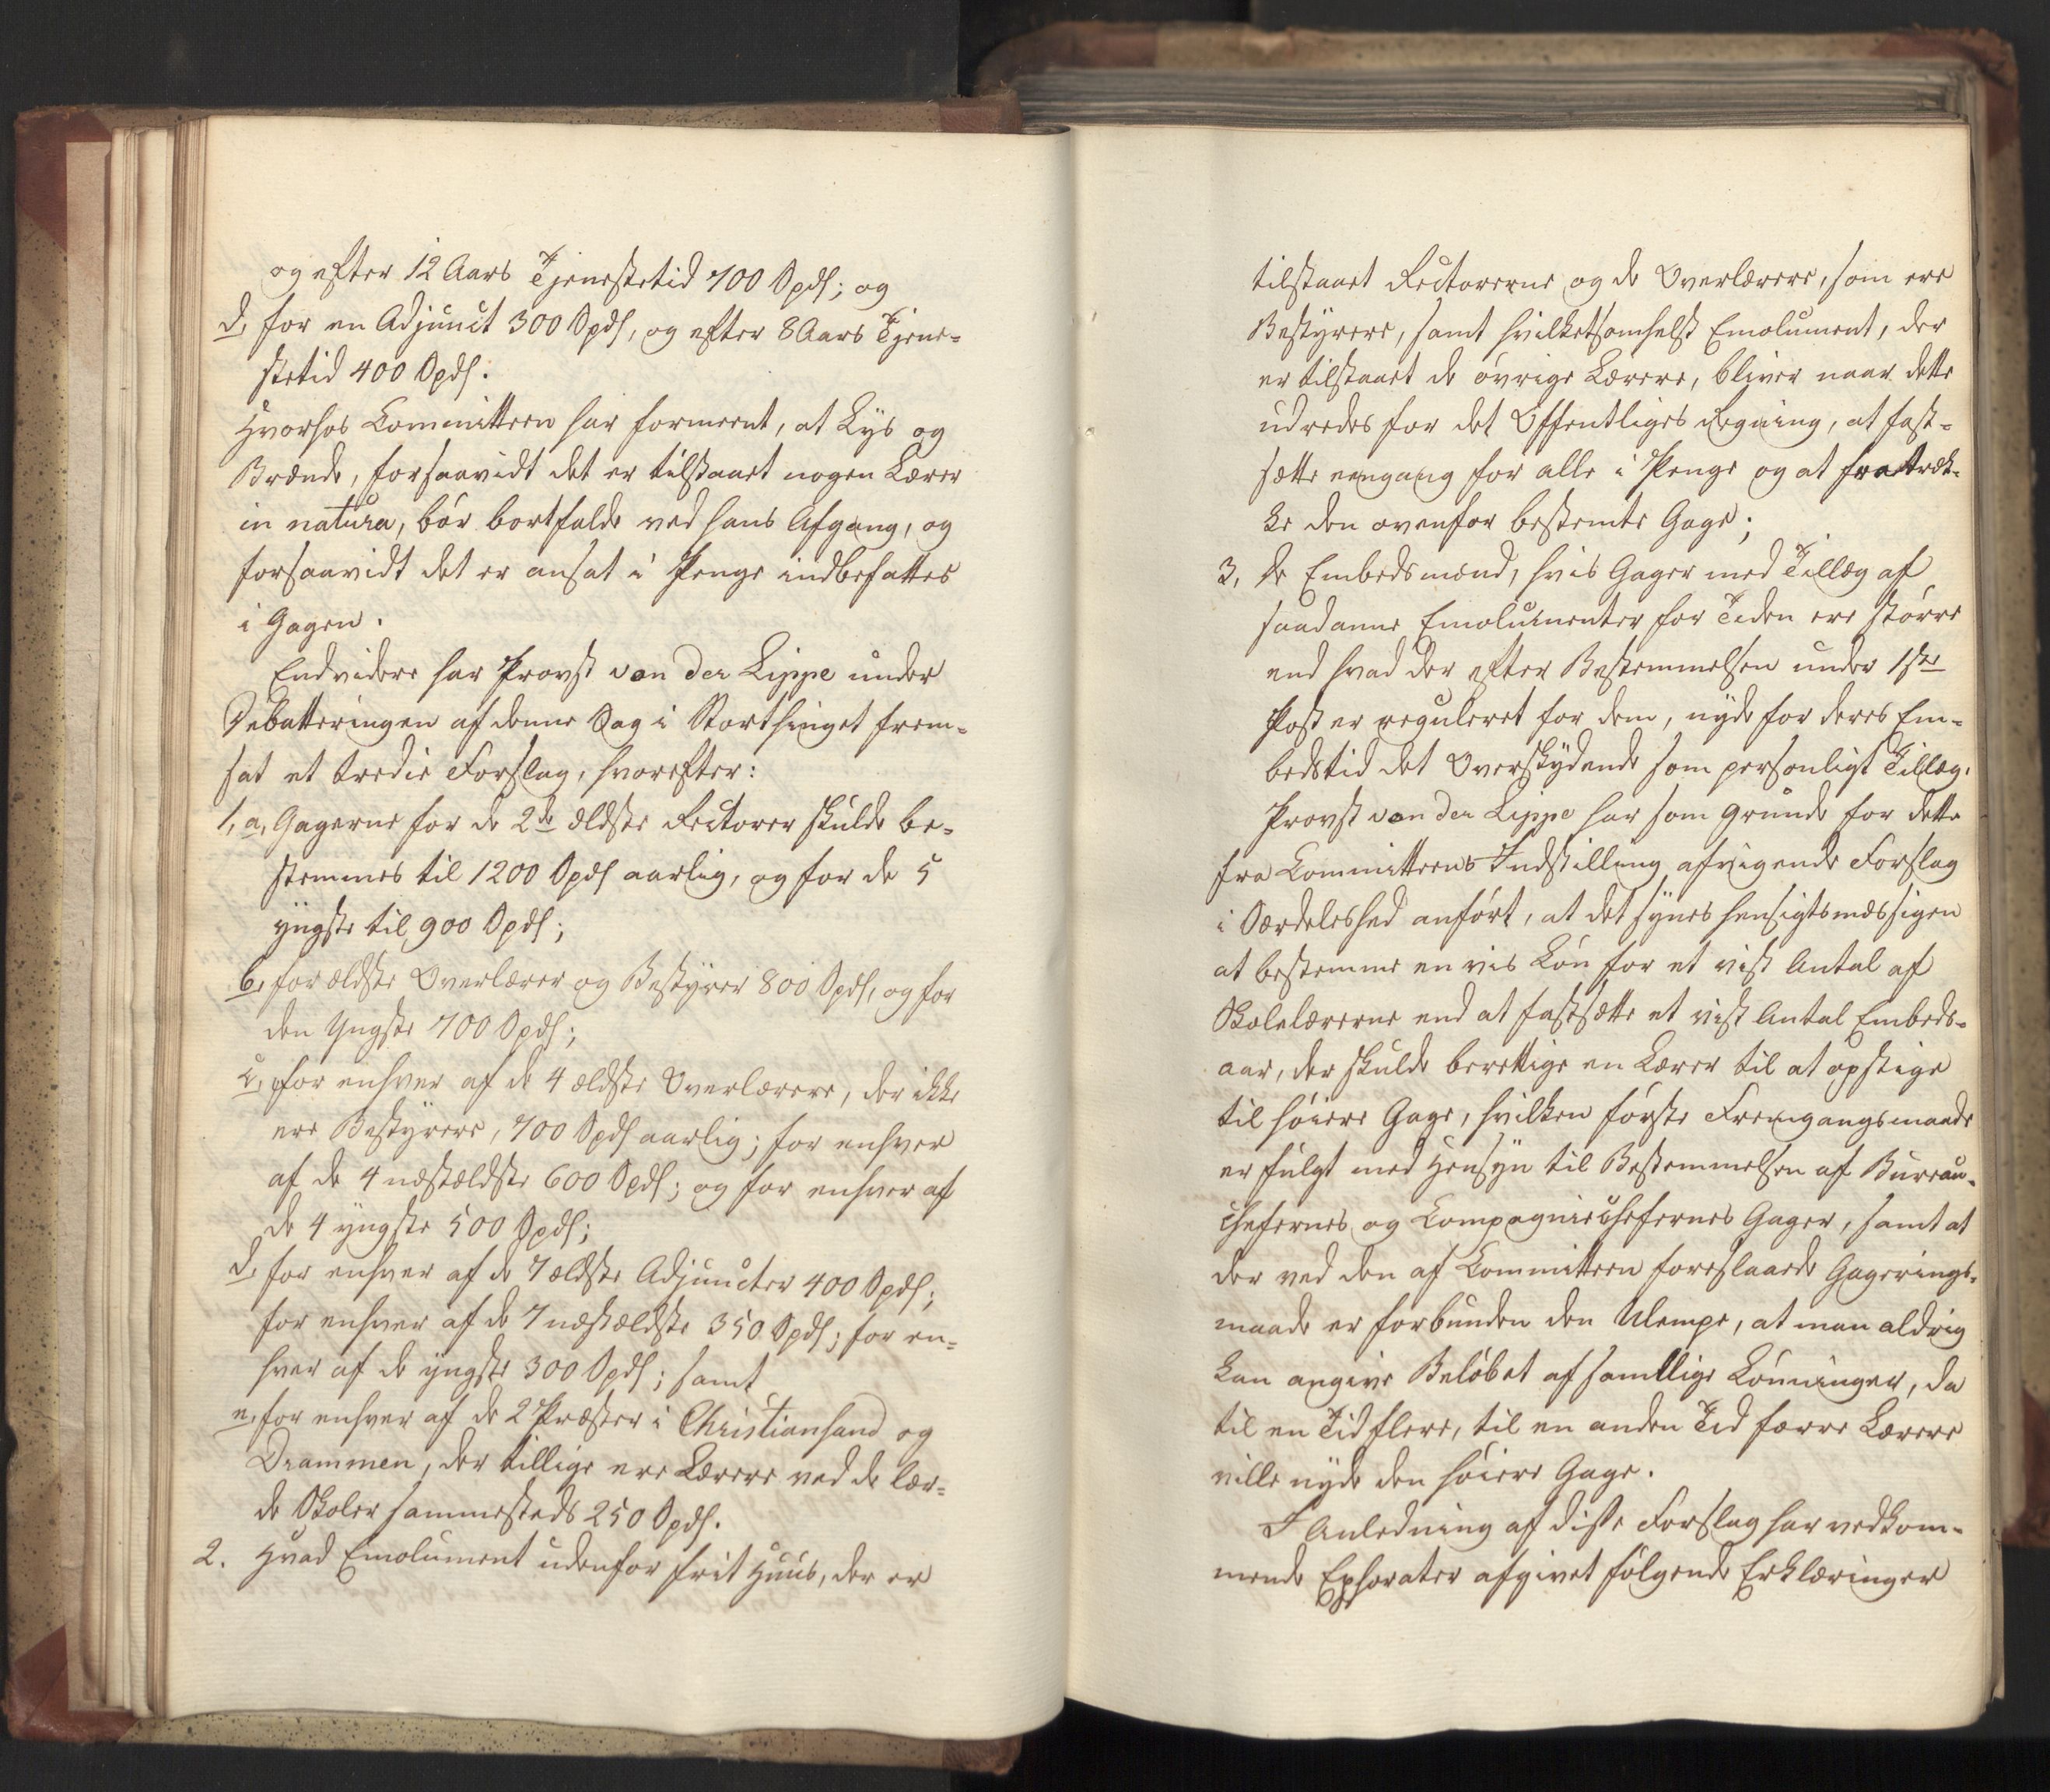 og efter 12 Aars Tjenestetid 700 Spdl; og
d, for en Adjunct 300 Spdl, og efter 8 Aars Tjene-
stetid 400 Spdl.
Hvorhos Committeen har formeent, at Lys og
Brænde, forsaavidt det er tilstaaet nogen Lærer
in natura, bör bortfalde ved hans Afgang, og
forsaavidt det er ansat i Penge indbefattes
i Gagen.
Endvidere har Provst von der Lippe under
Debatteringen af denne Sag i Storthinget frem-
sat et tredie Forslag, hvorefter:
1, a, Gagerne for de 2de ældste Rectorer skulde be-
stemmes til 1200 Spdl aarlig, og for de 5
yngste til 900 Spdl;
b, for ældste Overlærer og Bestyrer 800 Spdl, og for
den Yngste 700 Spdl;
c, for enhver af de 4 ældste Overlærere, der ikke
ere Bestyrere, 700 Spdl aarlig; for enhver
af de 4 næstældste 600 Spdl; og for enhver af
de 4 yngste 500 Spdl;
d, for enhver af de 7 ældste Adjuncter 400 Spdl;
for enhver af de 7 næstældste 350 Spdl; for en-
hver af de yngste 300 Spdl; samt
e, for enhver af de 2 Præster i Christiansand og
Drammen, der tillige ere Lærere ved de lær-
de Skoler sammesteds 250 Spdl.
2. Hvad Emolument udenfor frit Huus, der er
tilstaaet Rectorerne og de Overlærere, som ere
Bestyrere, samt hvilketsomhelst Emolument, der
er tilstaaet de övrige Lærere, bliver naar dette
udredes for det Offentliges Regning, at fast-
sætte eengang for alle i Penge og at fratræk-
ke den ovenfor bestemte Gage;
3, De Embedsmænd, hvis Gager med Tillæg af
saadanne Emolumenter for Tiden ere större
end hvad der efter Bestemmelsen under 1ste
Post er reguleret for dem, nyde for deres Em-
bedstid det Overskydende som personligt Tillæg.
Provst von der Lippe har som Grunde for dette
fra Committeens Indstilling afvigende Forslag
i Særdeleshed anfört, at det synes hensigtsmæssigen
at bestemme en vis Lön for et vist Antal af
Skolelærerne end at fastsætte et vist Antal Embeds-
aar, der skulde berettige en Lærer til at opstige
til höiere Gage, hvilken förste Fremgangsmaade
er fulgt med Hensyn til Bestemmelsen af Bureau-
chefernes og Compagniechefernes Gager, samt at
der ved den af Committeen foreslaaede Gagerings-
maade er forbunden den Ulempe, at man aldrig
kan angive Belöbet af samtlige Lönninger, da
til en Tid flere, til en anden Tid færre Lærere
ville nyde den höiere Gage.
I Anledning af disse Forslag har vedkom-
mende Ephorater afgivet fölgende Erklæringer